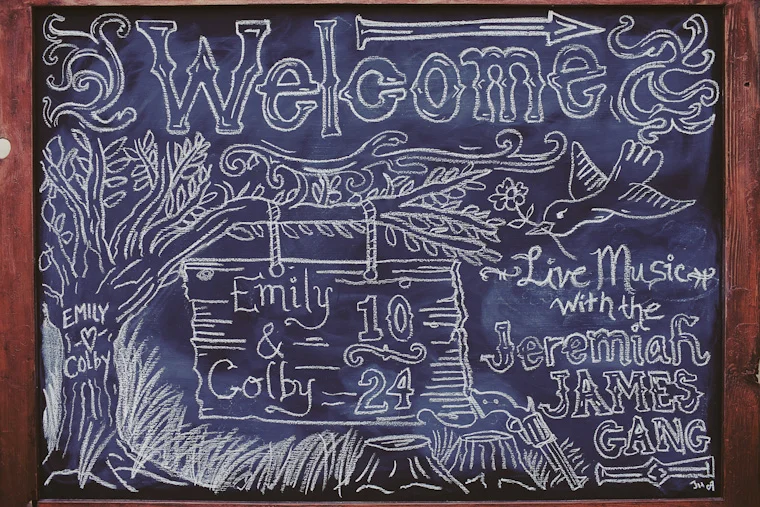 Welcome
EMILY
COLBY
Emily
&
Colby
10
24
Live Music
with the
Jeremiah
JAMES
GANG